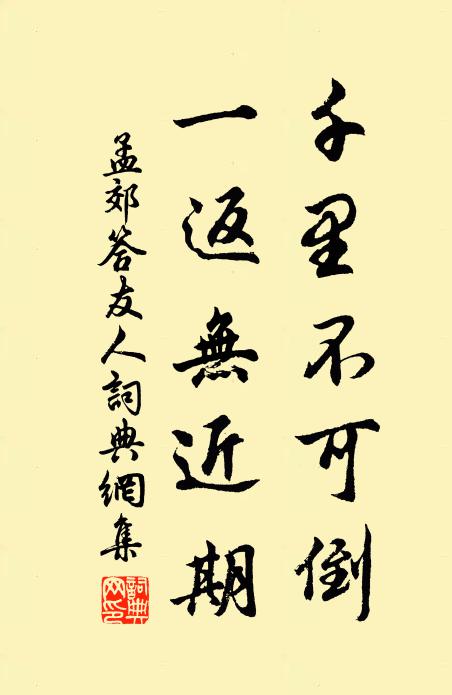 千里不可倒
一返無近期
孟郊答友人詞典網集
詞典网印